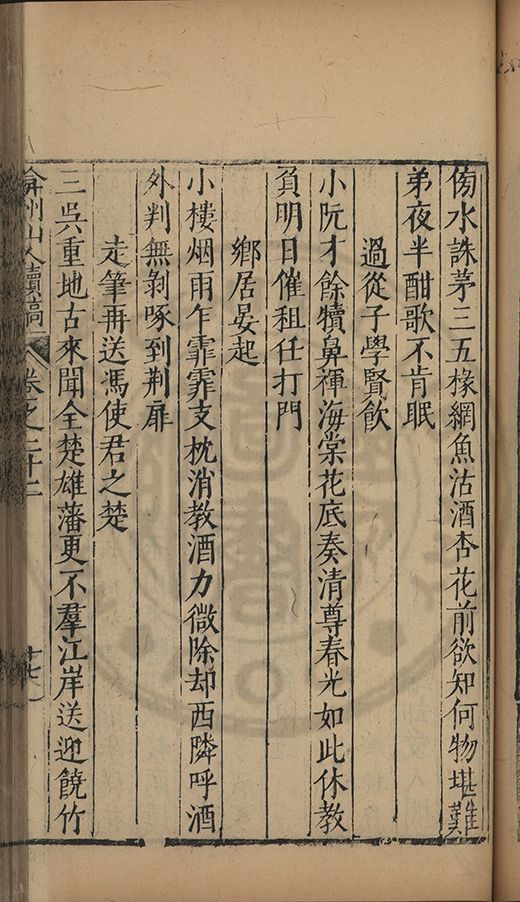 傍水誅茅三五椽網魚沽酒杏花前欲知何物堪難
弟夜半酣歌不肯眠
過從子學賢飲
小阮才餘犢鼻褌海棠花底奏清尊春光如此休教
負明日催租任打門
鄉居晏起
小樓烟雨乍霏霏支枕消教酒力微除却西隣呼酒
外判無剝啄到荆扉
走筆再送馮使君之楚
三吳重地古來聞全楚雄藩更不羣江岸送迎饒竹
弇州山人續稿 卷之二十二 十七